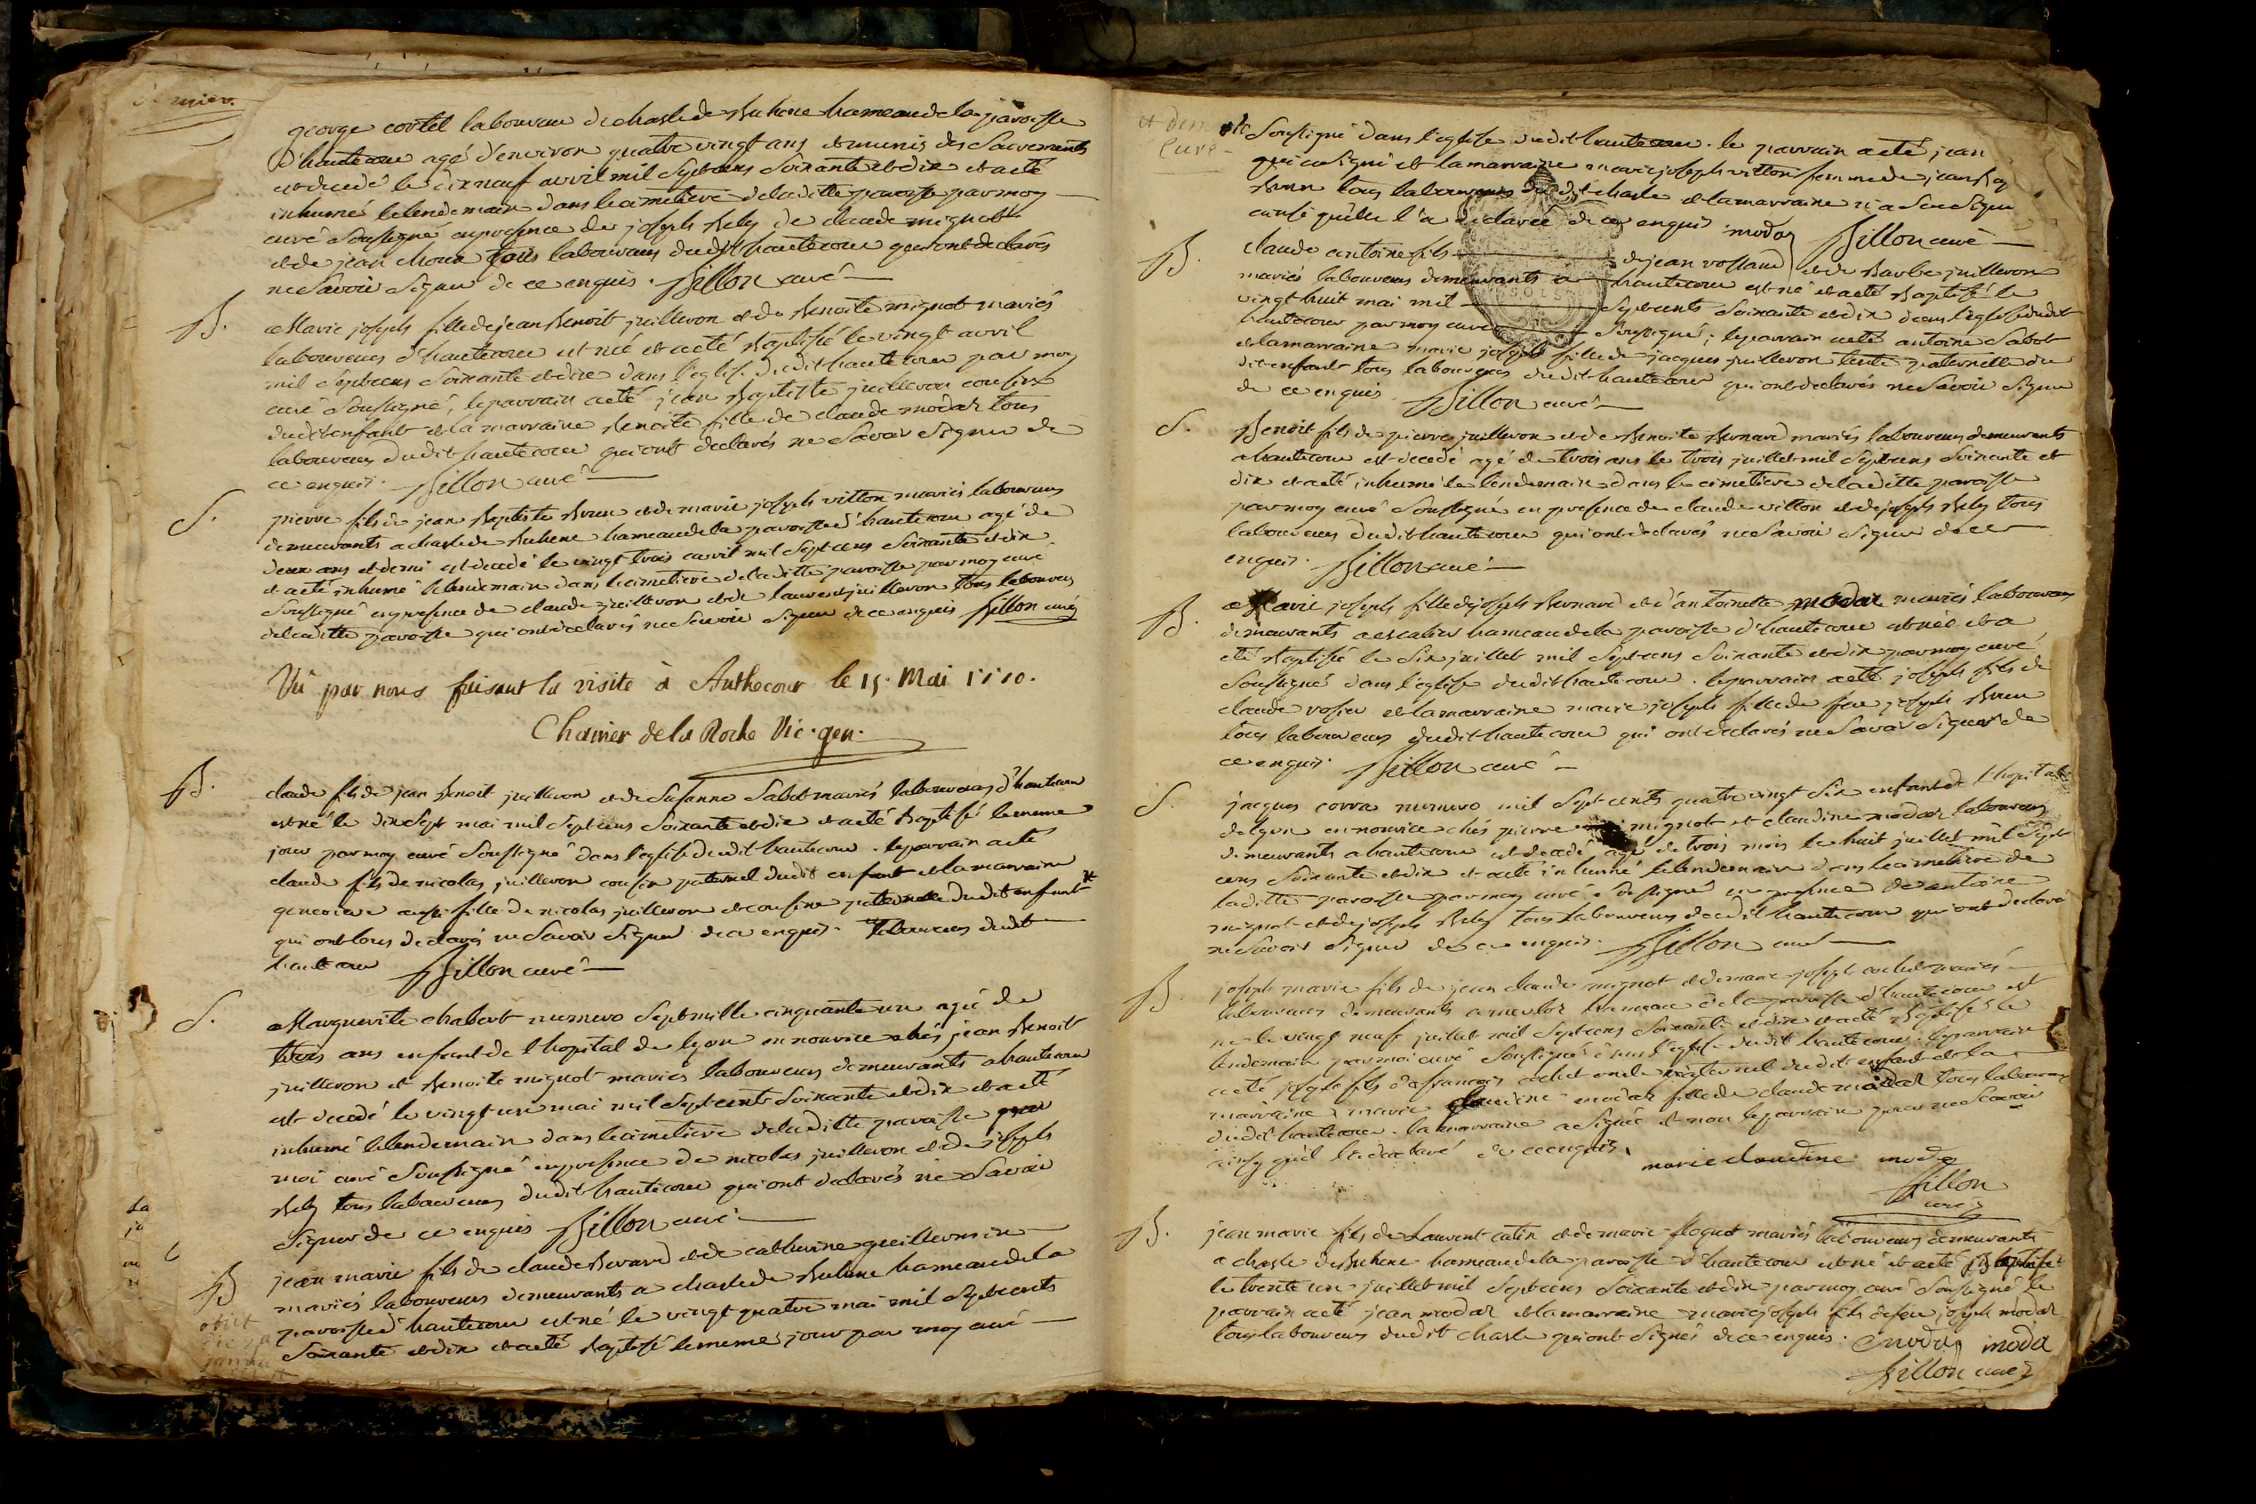 george cortel laboureur de chasle de Ruhene hameau de la paroisse
d'hautecour agé d'environ quatre vingt ans et munis des Sacrements
est decedé le dix neuf avril mil Septcens Soixante et dix et a eté
inhumé le lendemain dans le cimetiere de laditte paroisse par moy
curé Soussigné en presence de joseph Rely de claude mignot
et de jean tous laboureurs dudit hautecour qui ont declarés
ne Savoir Signer de ce enquis. Billon curé
B.
Marie joseph fille de jean Benoit juilleron et de Benoite mignot mariés
laboureurs d'hautecour est né et a eté Baptisé le vingt avril
mil Septcens Soixante et dix dans l'eglise dudit hautecour par moy
curé Soussigné, le parrain a eté jean Baptiste juilleron cousin
dudit enfant et la marraine Benoite fille de claude modas tous
laboureurs dudit hautecour qui ont declarés ne Savoir Signer de
ce enquis. Billon curé
S.
pierre fils de jean Baptiste Brun et de marie joseph vitton mariés laboureurs
demeurants a chasle de Ruhene hameau de la paroisse d'hautecour agé de
deux ans et demi est decedé le vingt trois avril mil Sept cens Soixante et dix
et a eté inhumé le lendemain dans le cimetiere de laditte paroisse par moy curé
Soussigné en presence de claude juilleron et de laurent juilleron tous laboureurs
de laditte paroisse qui ont declarés ne Savoir Signer de ce enquis Billon curé
Vû par nous faisant la visite à Authecour le 15. Mai 1770.
Charrier de la Roche Vic. gen.
B.
claude fils de jean Benoit juilleron et de Susanne Sabot mariés laboureurs d'hautecour
est né le dix Sept mai mil Septcens Soixante et dix et a eté Baptisé le meme
jour par moy curé Soussigné dans l'eglise dudit hautecour. le parrain a eté
claude fils de nicolas juilleron cousin paternel dudit enfant et la marraine
aussi fille de nicolas juilleron et cousine paternelle dudit enfant
qui ont tous declarés ne Savoir Signer de ce enquis. laboureurs dudit
hautecour Billon curé
S.
Marguerite chabert numero Septmille cinquante un agé de
trois ans enfant de l'hopital de lyon en nourice chés jean Benoit
juilleron et Benoite mignot mariés laboureurs demeurants a hautecour
est decedé le vingt un mai mil Septcents Soixante et dix et a eté
inhumé le lendemain dans le cimetiere de laditte paroisse par
moi curé Soussigné en presence de nicolas juilleron et de joseph
Rely tous laboureurs dudit hautecour qui ont declarés ne Savoir
Signer de ce enquis Billon curé
B
jean marie fils de claude Bernard et de catherine guillermin
mariés laboureurs demeurants a chasle de Ruhene hameau de la
paroisse d'hautecour est né le vingt quatre mai mil Septcents
Soixante et dix et a eté Baptisé le meme jour par moy curé
Soussigné dans l'eglise dudit hautecour. le parrain a eté jean
qui a Signé et la marraine marie joseph vitton femme de jean
Brun tous laboureurs dudit chasle et la marraine n'a Sceu Signer
ainsi qu'elle l'a declarée de ce enquis. modas Billon curé
B.
claude antoine fils de jean vossand et de Barbe juilleron
mariés laboureurs demeurants a hautecour est né et a eté Baptisé le
vingt huit mai mil Septcents Soixante et dix dans l'eglise dudit
hautecour par moy curé Soussigné; le parrain a eté antoine Sabot
et la marraine marie joseph fille de jacques juilleron tente paternelle du
dit enfant tous laboureurs dudit hautecour qui ont declarés ne Savoir Signer
de ce enquis Billon curé
S.
Benoit fils de pierre juilleron et de Benoite Bernard mariés laboureurs demeurants
a hautecour est decedé agé de trois ans le trois juillet mil Septcens Soixante et
dix et a eté inhumé le lendemain dans le cimetiere de laditte paroisse
par moy curé Soussigné en presence de claude vitton et de joseph Rely tous
laboureurs dudit hautecour qui ont declarés ne Savoir Signer de ce
enquis. Billon curé
B.
Marie joseph fille de joseph Bernard et d'antoinette modas mariés laboureurs
demeurants a hameau de la paroisse d'hautecour est née et a
eté Baptisé le Six juillet mil Septcens Soixante et dix par moy curé
Soussigné dans l'eglise dudit hautecour. le parrain a eté joseph fils de
claude et la marraine marie joseph fille de feu joseph Brun
tous laboureurs dudit hautecour qui ont declarés ne Savoir Signer de
ce enquis. Billon curé
S.
jacques corra numero mil Sept cents quatre vingt Six enfant de l'hopital
de lyon en nourice chés pierre mignot et claudine modas laboureurs
demeurants a hautecour est decedé agé de trois mois le huit juillet mil Sept
cens Soixante et dix et a eté inhumé le lendemain dans le cimetiere de
laditte paroisse par moy curé Soussigné en presence de antoine
mignot et de joseph Rely tous laboureurs dudit hautecour qui ont declaré
ne Savoir Signer de ce enquis. Billon curé
B.
joseph marie fils de jean claude mignot et de marie joseph cochet mariés
laboureurs demeurants a hameau de la paroisse d'hautecour est
né le vingt neuf juillet mil Septcens Soixante et dix et a eté Baptisé le
lendemain par moi curé Soussigné dans l'eglise dudit hautecour. le parrain
a eté joseph fils de francois cochet oncle maternel dudit enfant et la
marraine marie claudine modas fille de claude modas tous laboureurs
dudit hautecour. la marraine a Signé et non le parrain pour ne Scavoir
ainsy qu'il l'a declaré de ce enquis. marie claudine modas
Billon
curé
B.
jean marie fils de Laurent catin et de marie floquet mariés laboureurs demeurants
a chasle de Ruhene hameau de la paroisse d'hautecour est né et a eté Baptisé
le trente un juillet mil Septcens Soixante et dix par moy curé Soussigné le
parrain a eté jean modas et la marraine marie joseph fille de feu joseph modas
tous laboureurs dudit chasle qui ont Signés de ce enquis. modas moda
Billon curé